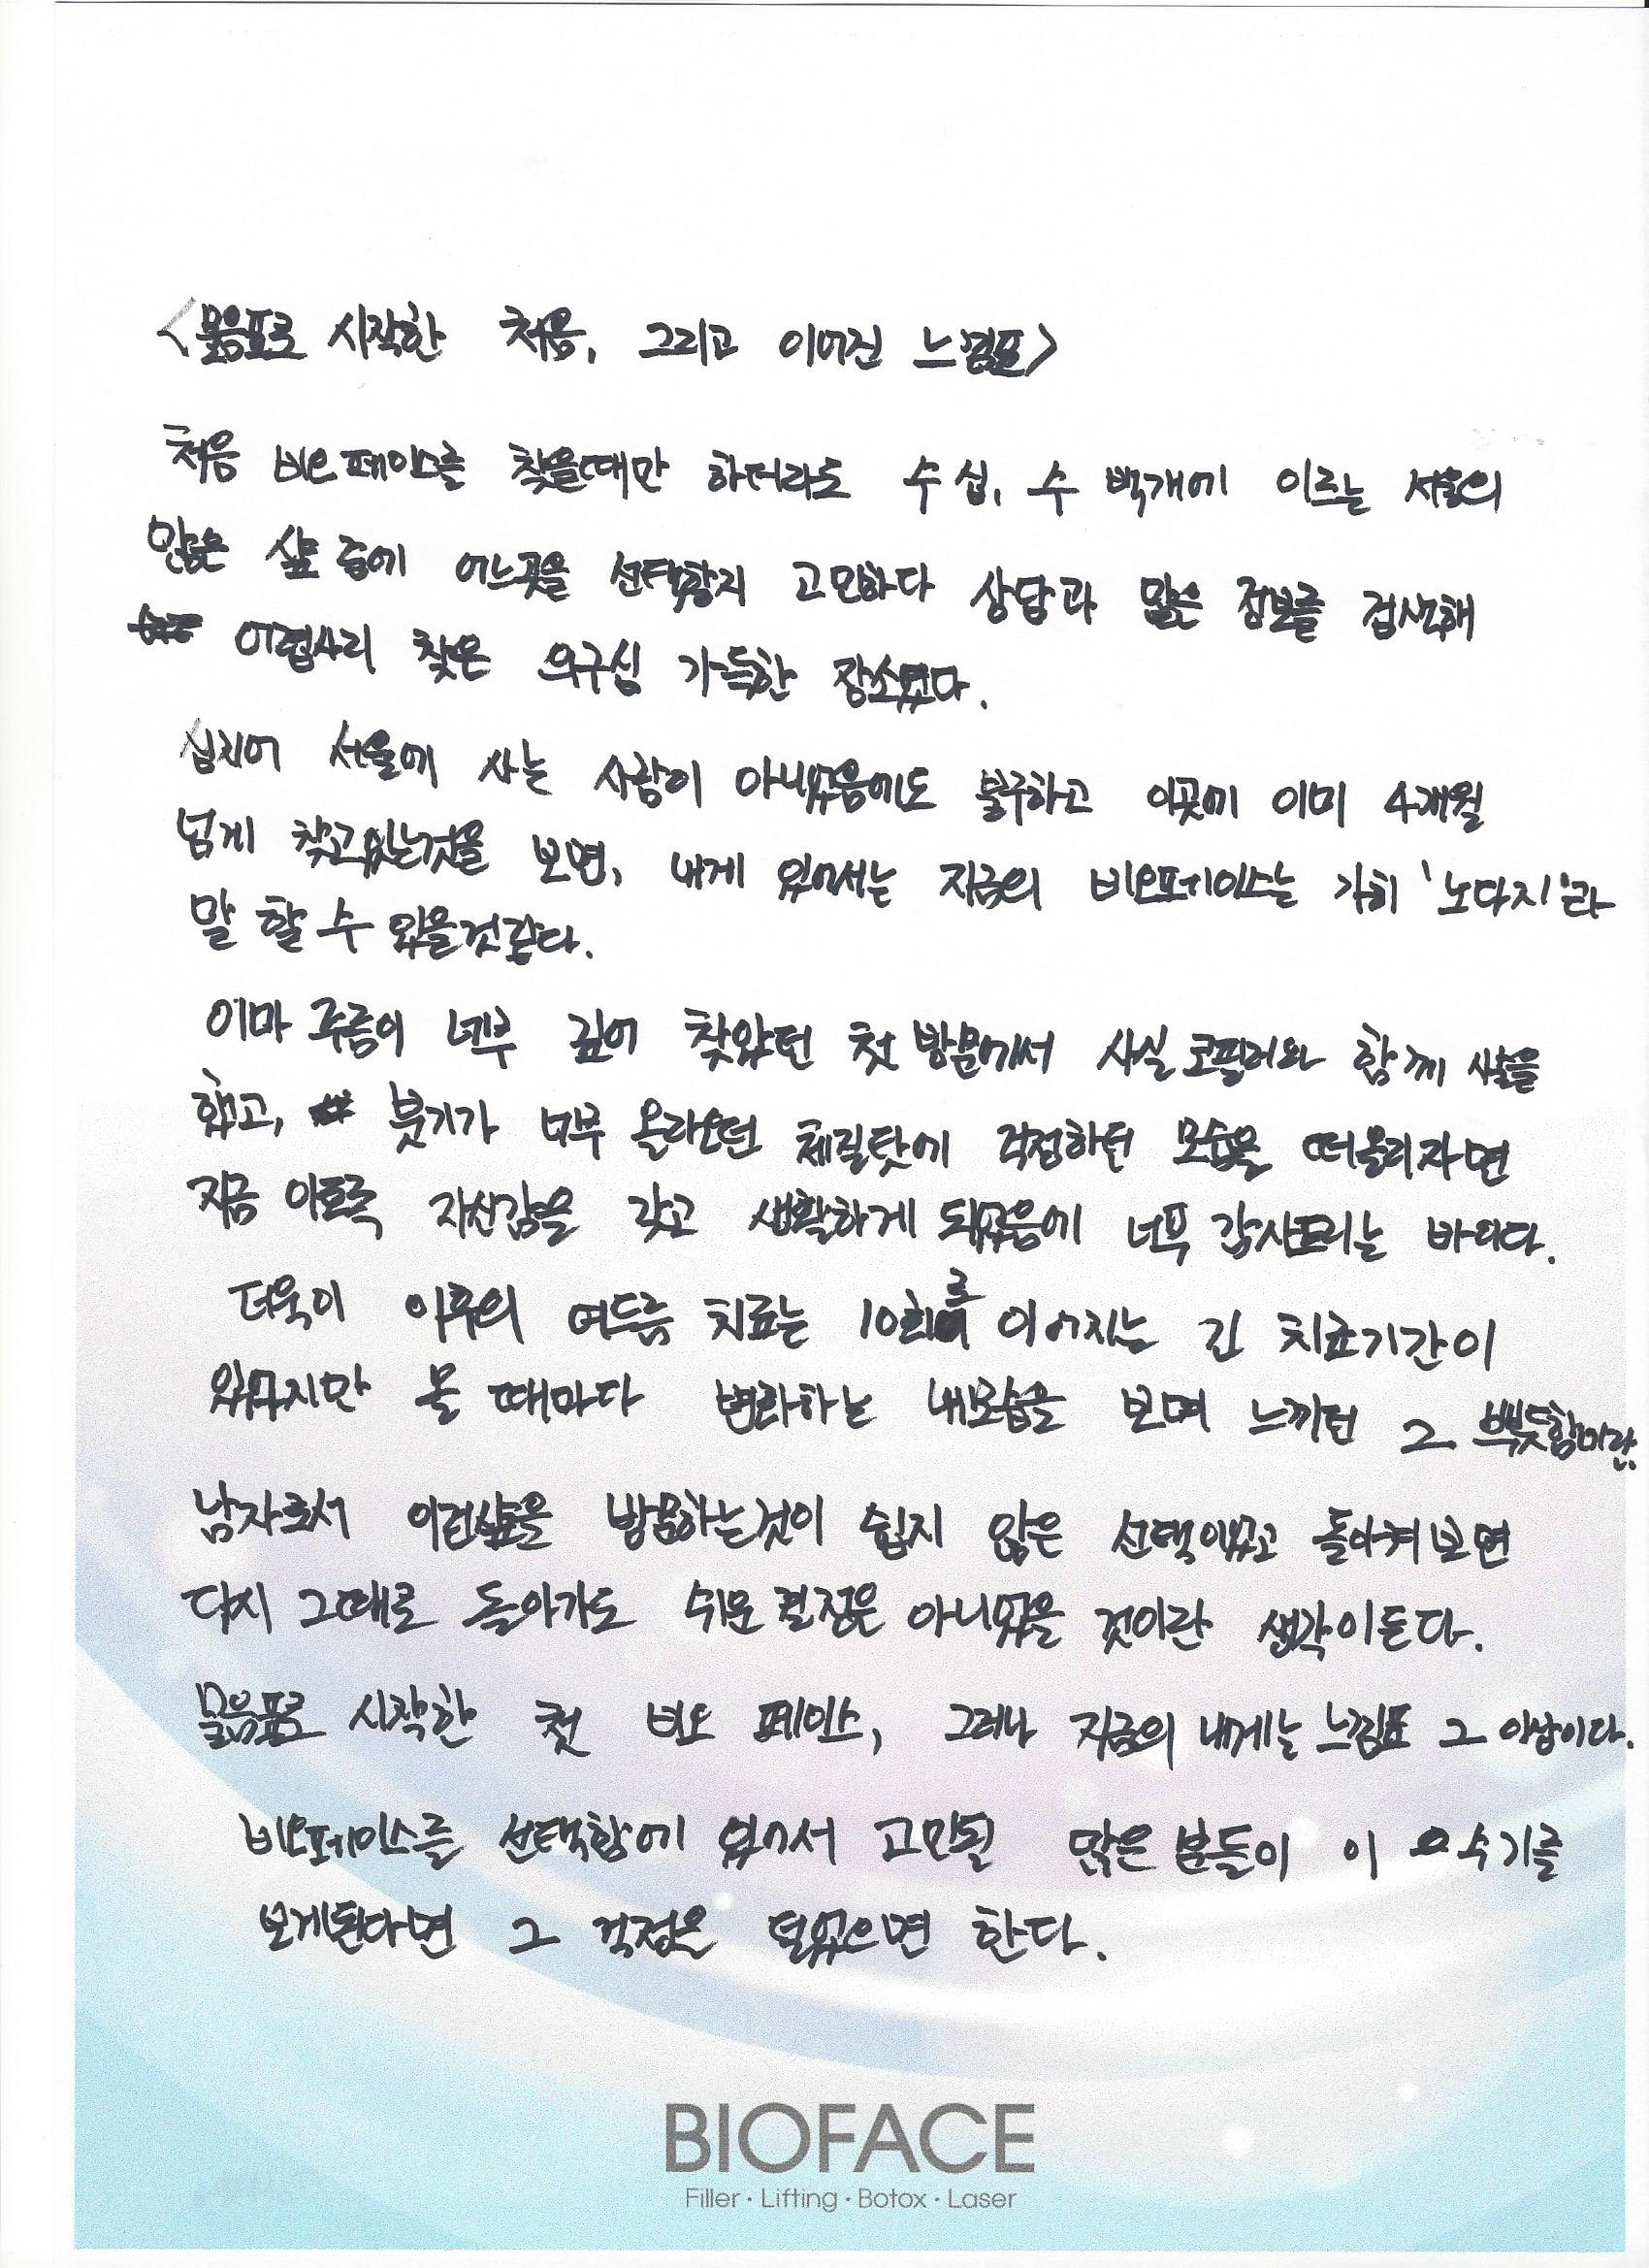 <물음표로 시작한 처음, 그리고 이어진 느낌표>
처음 비오페이스를 찾을때만 하더라도 수 십, 수 백개에 이르는 서울의
많은 샾 중에 어느곳을 선택할지 고민하다 상담과 많은 정보를 검색해
어렵사리 찾은 의구심 가득한 장소였다.
심지어 서울에 사는 사람이 아니였음에도 불구하고 이곳에 이미 4개월
넘게 찾고있는것을 보면, 내게 있어서는 지금의 비오페이스는 가히 '노다지'라
말 할 수 있을것 같다.
이마 주름이 너무 깊어 찾았던 첫 방문에서 사실 코필러와 함께 시술을
했고, 붓기가 너무 올라오던 체질탓에 걱정하던 모습을 떠올리자면
지금 이토록 자신감을 갖고 생활하게 되었음에 너무 감사드리는 바이다.
더욱이 이후의 여드름 치료는 10회로 이어지는 긴 치료기간이
있었지만 올 때마다 변화하는 내모습을 보며 느끼던 그 뿌듯함이란.
남자로서 이런샾을 방문하는것이 쉽지 않은 선택이었고 돌이켜보면
다시 그때로 돌아가도 쉬운 결정은 아니였을 것이란 생각이든다.
물음표로 시작한 첫 비오 페이스, 그러나 지금의 내게는 느낌표 그 이상이다.
비오페이스를 선택함에 있어서 고민될 많은 분들이 이 수기를
보게된다면 그 걱정은 덜었으면 한다.
BIOFACE
Filler · Lifting · Botox · Laser